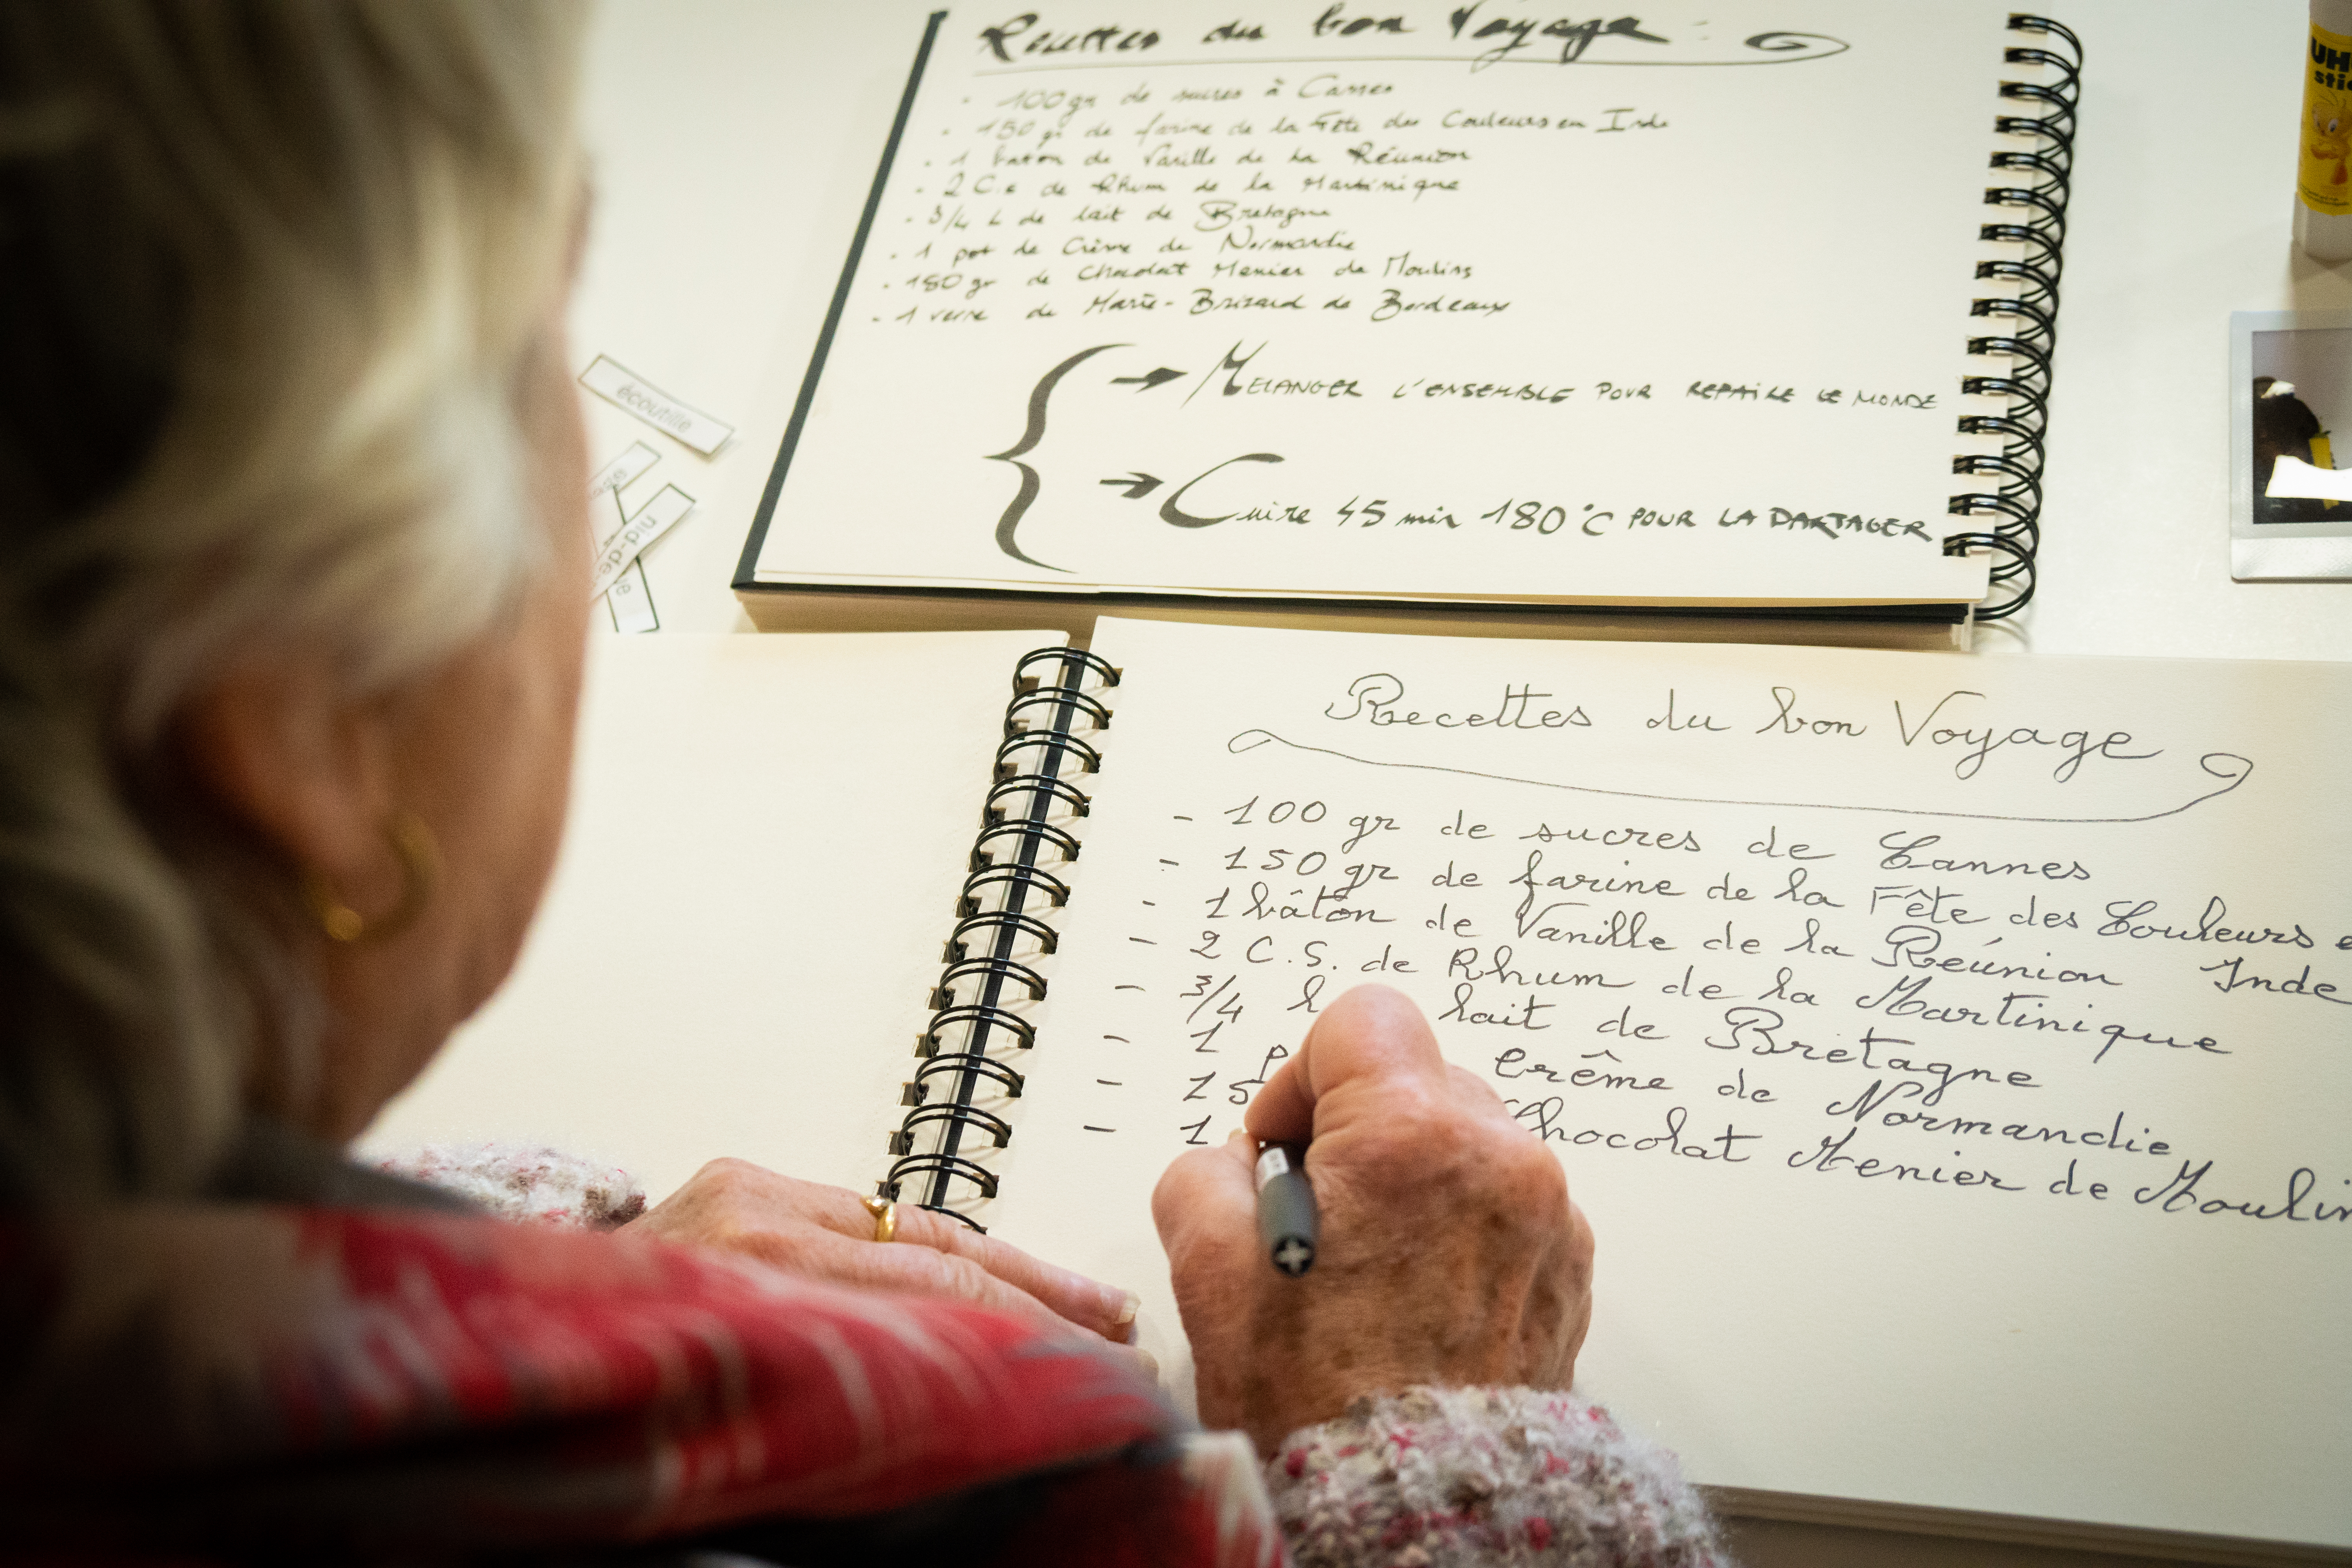 Recettes du bon Voyage
- 100 gr de sucres à Cannes
- 150 gr de farine de la Fête des Couleurs en Inde
- 1 baton de Vanille de la Réunion
- 2 C.s de Rhum de la Martinique
- 3/4 L de lait de Bretagne
- 1 pot de Crème de Normandie
- 150 gr de Chocolat Menier de Moulins
- 1 verre de Marie-Brizard de Bordeaux
→ MELANGER L'ENSEMBLE POUR REPAIRE LE MONDE
→ Cuire 45 min 180°C POUR LA PARTAGER
UH
stic
écoutille
nid-de-
Recettes du bon Voyage
- 100 gr de sucres de Cannes
- 150 gr de farine de la Fête des Couleurs e
Inde
- 1 bâton de Vanille de la Réunion
- 2 C.S. de Rhum de la Martinique
- 3/4 l lait de Bretagne
- 1 p Crême de Normandie
- 15 Chocolat Menier de Moulin
- 1